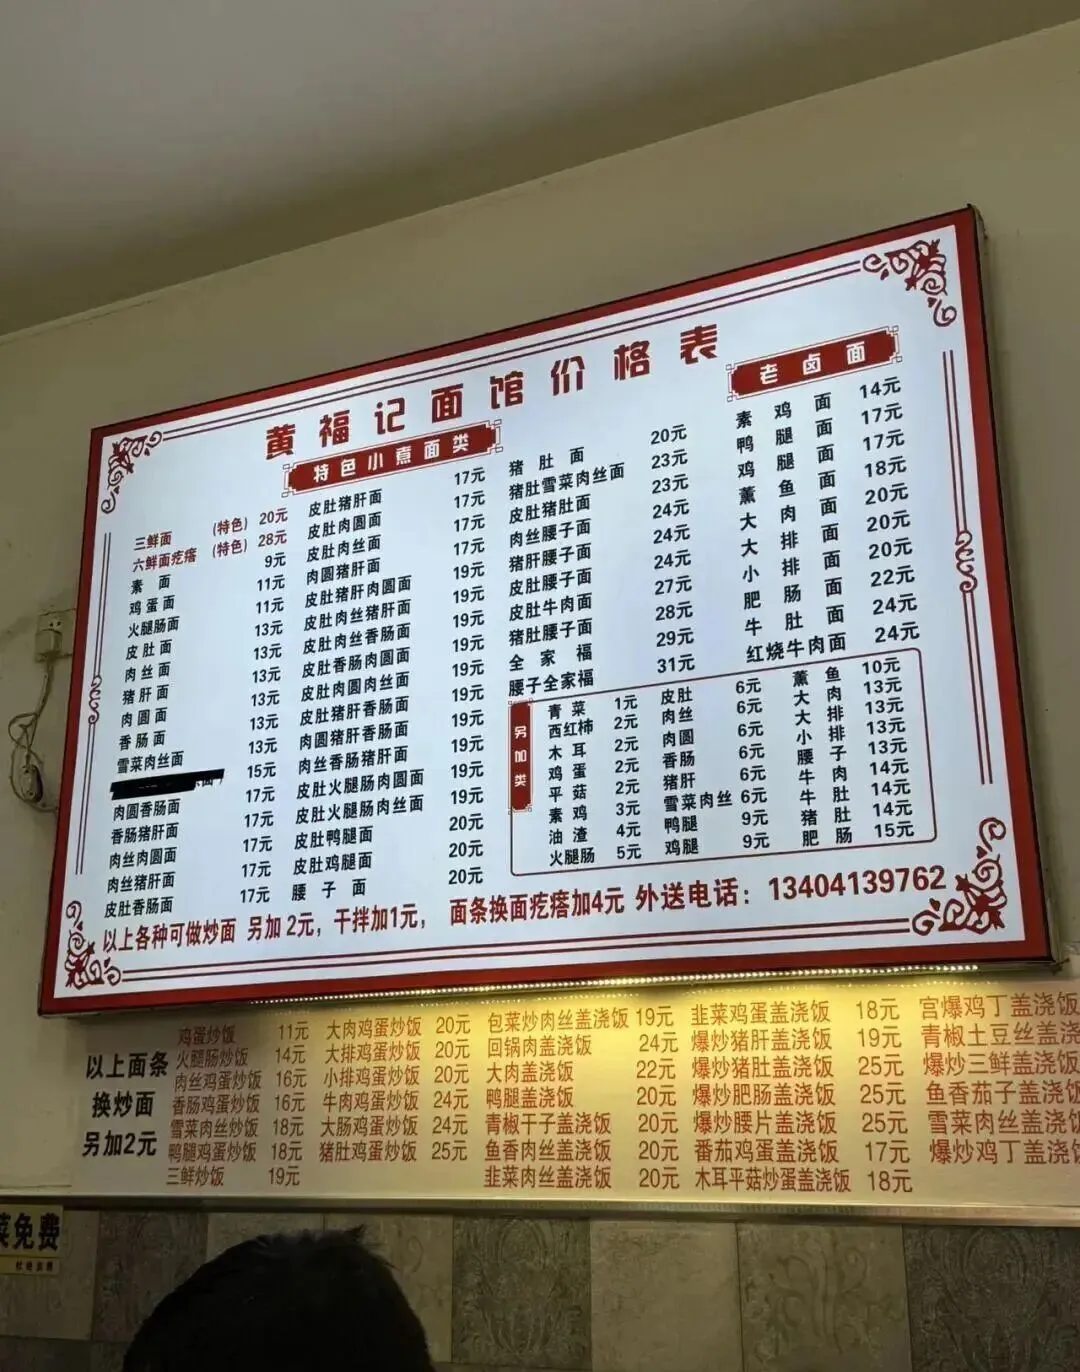 黄福记面馆价格表
特色小煮面类
三鲜面 (特色) 20元
六鲜面疙瘩 (特色) 28元
素面 9元
鸡蛋面 11元
火腿肠面 11元
皮肚面 13元
肉丝面 13元
猪肝面 13元
肉圆面 13元
香肠面 13元
雪菜肉丝面 13元
15元
肉圆香肠面 17元
香肠猪肝面 17元
肉丝肉圆面 17元
肉丝猪肝面 17元
皮肚香肠面 17元
皮肚猪肝面 17元
皮肚肉圆面 17元
皮肚肉丝面 17元
肉圆猪肝面 17元
皮肚猪肝肉圆面 19元
皮肚肉丝猪肝面 19元
皮肚肉丝香肠面 19元
皮肚香肠肉圆面 19元
皮肚肉圆肉丝面 19元
皮肚猪肝香肠面 19元
肉圆猪肝香肠面 19元
肉丝香肠猪肝面 19元
皮肚火腿肠肉圆面 19元
皮肚火腿肠肉丝面 19元
皮肚鸭腿面 20元
皮肚鸡腿面 20元
腰子面 20元
猪肚面 20元
猪肚雪菜肉丝面 23元
皮肚猪肚面 23元
肉丝腰子面 24元
猪肝腰子面 24元
皮肚腰子面 24元
皮肚牛肉面 27元
猪肚腰子面 28元
全家福 29元
腰子全家福 31元
老卤面
素鸡面 14元
鸭腿面 17元
鸡腿面 17元
薰鱼面 18元
大肉面 20元
大排面 20元
小排面 20元
肥肠面 22元
牛肚面 24元
红烧牛肉面 24元
另加类
青菜 1元
西红柿 2元
木耳 2元
鸡蛋 2元
平菇 2元
素鸡 3元
油渣 4元
火腿肠 5元
皮肚 6元
肉丝 6元
肉圆 6元
香肠 6元
猪肝 6元
雪菜肉丝 6元
鸭腿 9元
鸡腿 9元
薰鱼 10元
大肉 13元
大排 13元
小排 13元
腰子 13元
牛肉 14元
牛肚 14元
猪肚 14元
肥肠 15元
以上各种可做炒面 另加2元，干拌加1元， 面条换面疙瘩加4元 外送电话：13404139762
以上面条
换炒面
另加2元
鸡蛋炒饭 11元
火腿肠炒饭 14元
肉丝鸡蛋炒饭 16元
香肠鸡蛋炒饭 16元
雪菜肉丝炒饭 18元
鸭腿鸡蛋炒饭 18元
三鲜炒饭 19元
大肉鸡蛋炒饭 20元
大排鸡蛋炒饭 20元
小排鸡蛋炒饭 20元
牛肉鸡蛋炒饭 24元
大肠鸡蛋炒饭 24元
猪肚鸡蛋炒饭 25元
包菜炒肉丝盖浇饭 19元
回锅肉盖浇饭 24元
大肉盖浇饭 22元
鸭腿盖浇饭 20元
青椒干子盖浇饭 20元
鱼香肉丝盖浇饭 20元
韭菜肉丝盖浇饭 20元
韭菜鸡蛋盖浇饭 18元
爆炒猪肝盖浇饭 19元
爆炒猪肚盖浇饭 25元
爆炒肥肠盖浇饭 25元
爆炒腰片盖浇饭 25元
番茄鸡蛋盖浇饭 17元
木耳平菇炒蛋盖浇饭 18元
宫爆鸡丁盖浇饭
青椒土豆丝盖浇
爆炒三鲜盖浇饭
鱼香茄子盖浇饭
雪菜肉丝盖浇饭
爆炒鸡丁盖浇饭
菜免费